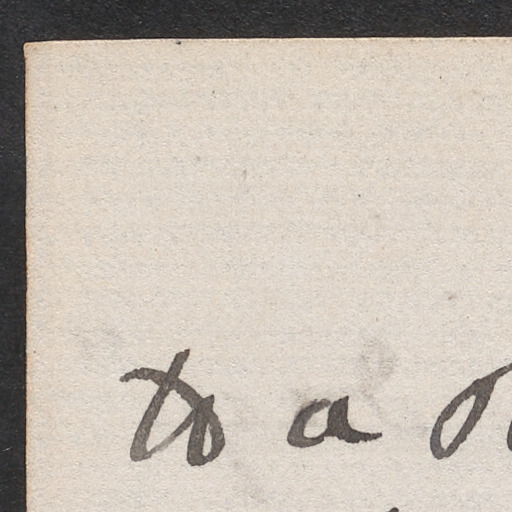 to a